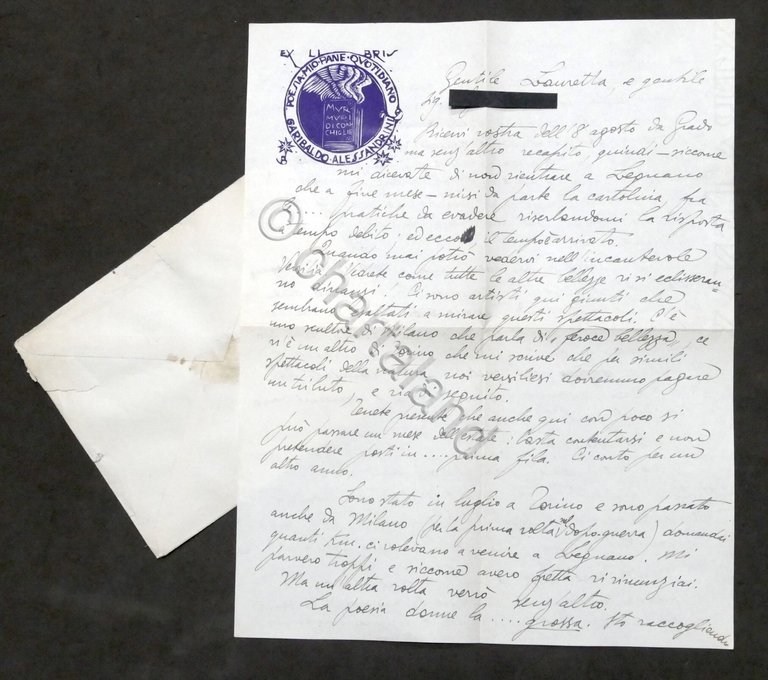 EX LIBRIS
POESIA MIO PANE QVOTIDIANO
GARIBALDO ALESSANDRINI
MVRMVRI
DI CON
CHIGLIE
Gentile Lauretta, e gentile
Sig.
Ricevi vostra dell'8 agosto da Grado
ma senz'altro recapito, quindi – siccome
mi dicevate di non rientrare a Legnano
che a fine mese – misi da parte la cartolina, fra
le .... pratiche da evadere riserbandomi la risposta
a tempo debito: ed ecco, il tempo è arrivato.
Quando mai potrò vedervi nell'incantevole
Versilia? Vedrete come tutte le altre bellezze vi si eclisseran-
no dinanzi! Ci sono artisti qui giunti che
sembrano a mirare questi spettacoli. C'è
uno scultore di Milano che parla di "feroce bellezza", ce
n'è un altro di Torino che mi scrive che per simili
spettacoli della natura noi versiliesi dovremmo pagare
un tributo, e via di seguito.
Tenete presente che anche qui con poco si
può passare un mese dell'estate: basta contentarsi e non
pretendere posti in .... prima fila. Ci conto per un
altro anno.
Sono stato in luglio a Torino e sono passato
anche da Milano (per la prima volta nel dopo guerra) domandai
quanti km. ci volevano a venire a Legnano. Mi
parvero troppi e siccome avevo fretta vi rinunziai.
Ma un'altra volta verrò senz'altro.
La poesia dorme la ..... grossa. Sto raccogliendo
© chartaland